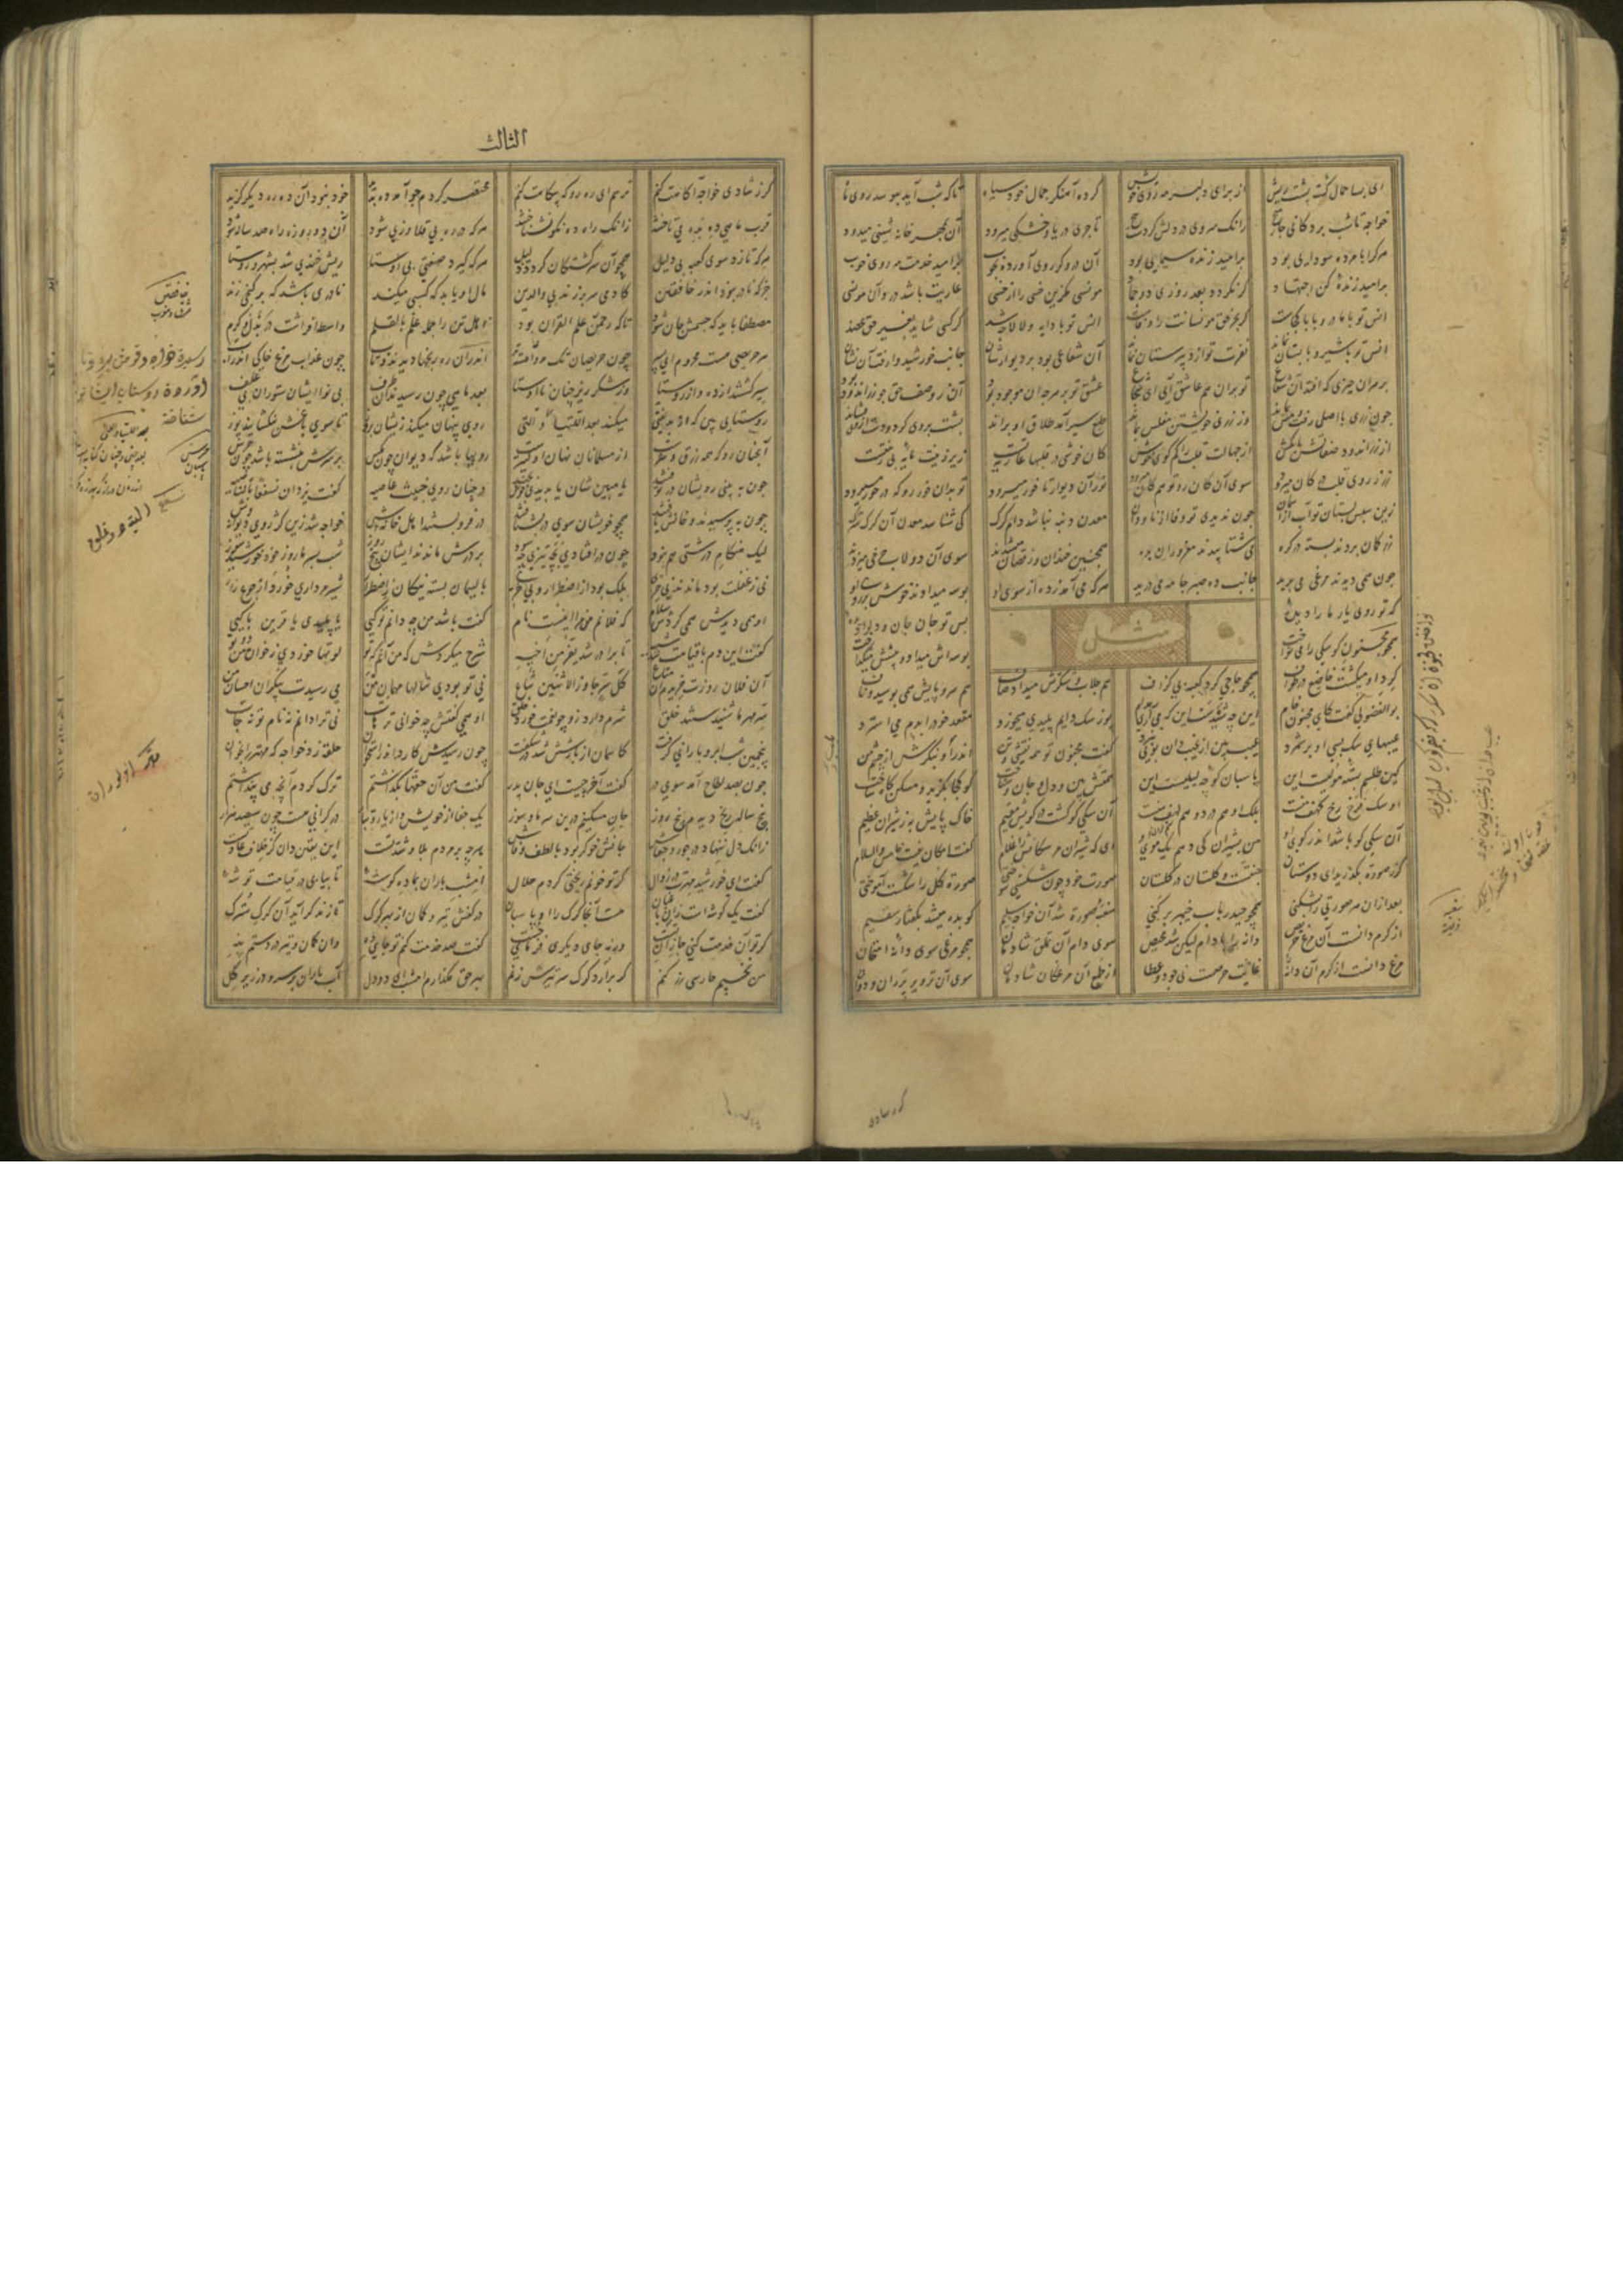 ای بسا حمال گشته پشت ریش از برای دلبر مه روی خویش کرده آهنگر جمال خود سیاه تا که شب آید ببوسد روی ماه
خواجه تا شب بر دکانی چارمیخ زانک سروی در دلش کردست بیخ تاجری دریا و خشکی میرود آن بمهر خانه شینی میدود
هرکرا با مرده سودایی بود بر امید زنده سیمایی بود آن دروگر روی آورده بچوب بر امید خدمت مه روی خوب
بر امید زنده کن اجتهاد کو نگردد بعد روزی دو جماد مونسی مگزین خسی را از خسی عاریت باشد درو آن مونسی
انس تو با مادر و بابا کجاست گر بجز حق مونسانت را وفاست انس تو با دایه و لالا چه شد گر کسی شاید بغیر حق عضد
انس تو با شیر و با پستان نماند نفرت تو از دبیرستان نماند آن شعاعی بود بر دیوارشان جانب خورشید وا رفت آن نشان
بر هران چیزی که افتد آن شعاع تو بران هم عاشق آیی ای شجاع عشق تو بر هرچه آن موجود بود آن ز وصف حق چو زراندود بود
چون زری با اصل رفت و مس بماند وز زری خویشتن مفلس بماند طبع سیر آمد طلاق او براند پشت بروی کرد و دست از وی فشاند
از زراندود صفاتش پا بکش از جهالت قلب را کم گوی خوش کان خوشی در قلبها عاریتست زیر زینت مایه بی زینتست
زر ز روی قلب در کان میرود سوی آن کان رو تو هم کان میرود نور از دیوار تا خور میرود تو بدان خور رو که در خور میرود
زین سپس بستان تو آب از آسمان چون ندیدی تو وفا از ناودان معدن دنبه نباشد دام گرگ کی شناسد معدن آن گرگ سترگ
زر کمان بردند بسته در گره می شتابیدند مغروران بده همچنین خندان و رقصان میشدند سوی آن دولاب چرخی میزدند
چون همی دیدند مرغی می پرید جانب ده صبر جامه می درید هرکه می آمد ز ده از سوی او بوسه میدادند خوش بر روی او
که تو روی یار ما را دیده پس تو جان جان و دیده
مثل
همچو مجنون کو سگی را می نواخت بوسه اش میداد و پیشش میگداخت
گرد او میگشت خاضع در طواف همچو حاجی گرد کعبه بی گزاف هم جلاب و شکرش میداد صاف هم سر و پایش همی بوسید و ناف
بوالفضولی گفت کای مجنون خام این چه شیدست این که می آری مدام پوز سگ دایم پلیدی میخورد مقعد خود را بلب می استرد
عیبهای سگ بسی او بر شمرد عیب بین از غیب دان بویی نبرد گفت مجنون تو همه نقشی و تن اندر آ و بنگرش از چشم من
کین طلسم بسته مولیست این پاسبان کوچه لیلیست این همتش بین و دل و جان و شناخت کو کجا بگزید و مسکن گاه ساخت
او سگ فرخ رخ کهف منست بلک او هم درد و هم لهف منست آن سگی کو گشت در کویش مقیم خاک پایش به ز شیران عظیم
آن سگی کو باشد اندر کوی او من بشیران کی دهم یک موی او ای که شیران مر سگانش را غلام گفت امکان نیست خامش والسلام
گر ز صورت بگذرید ای دوستان جنتست و گلستان در گلستان صورت خود چون شکستی سوختی صورت کل را شکست آموختی
بعد ازان هر صورتی را بشکنی همچو حیدر باب خیبر برکنی سغبه صورت شد آن خواجه سلیم کو بده میشد بگفتار سقیم
سوی دام آن تملق شادمان همچو مرغی سوی دانه امتحان
از کرم دانست آن مرغ حریص دانه را با دام لیکن شد محیص
مرغ دانست از کرم آن دانه غایت حرصست نی جود و عطا از طمع آن مرغکان شادمان سوی آن تزویر پران و دوان
گر ز شادی
الثالث
گر ز شادی خواجه آگاهت کنم ترسم ای ره رو که بیگاهت کنم مختصر کردم چو آمد ده پدید خود نبود آن ده ره دیگر گزید
قرب ماهی ده بده می تاختند زانک راه ده نکو نشناختند هرکه در ره بی قلاوزی شود آن دو روزه راه صد ساله شود
هرکه تازد سوی کعبه بی دلیل همچو آن سرگشتگان گردد ذلیل هرکه گیرد صنعتی بی اوستا ریش خندی شد بشهر و روستا
جز که نادر بود اندر خافقین کادمی سر بر زند بی والدین مال او یابد که کسبی میکند نادری باشد که بر گنجی زند
مصطفا باید که جسمش جان شود تا که رحمن علم القرآن بود اهل تن را جمله علم بالقلم واسطه افراشت در بذل کرم
هر حریصی هست محروم ای پسر چون حریصان تک مرو آهسته تر اندران ره رنجها دیدند و تاب چون عذاب مرغ خاکی اندر آب
سیر گشتند از ده و از روستا وز شکر ریز چنان نااوستا بعد ماهی چون رسیدند آن طرف بی نوا ایشان ستوران بی علف
روستایی بین که از بدنیتی میکند بعد اللتیا و التی روی پنهان میکند زیشان بروز تا سوی باغش نکشایند پوز
آنچنان رو که همه زرق و شرست از مسلمانان نهان اولیترست رویها باشد که دیوان چون مگس بر سرش بنشسته باشد چون حرس
چون ببینی روی شان در تو فتند یا مبین شان یا بدیدی خوش مخند در چنان روی خبیث عاصیه گفت یزدان نسفعا بالناصیه
چون بپرسیدند و خانش یافتند همچو خویشان سوی در بشتافتند در فرو بستند اهل خانه اش خواجه شد زین کژروی دیوانه وش
لیک هنگام درشتی هم نبود چون در افتادی بچه تیزی چه سود بر درش ماندند ایشان پنج روز شب بسرما روز خود خورشید سوز
نی ز غفلت بود ماندن نی خری بلک بود از اضطرار و بی خری با لئیمان بسته نیکان ز اضطرار شیر مرداری خورد از جوع زار
او همی دیدش همی کردش سلام که فلانم من مرا اینست نام گفت باشد من چه دانم تو کیی یا پلیدی یا قرین پاکیی
گفت این دم با قیامت شد شبیه تا برادر شد یفر من اخیه شرح میکردش که من آنم که تو لوتها خوردی ز خوان من دوتو
آن فلان روزت خریدم آن متاع کل سر جاوز الاثنین شاع نی تو بودی سالها مهمان من می رسیدت بیکران احسان من
سر مهر ما شنیدستند خلق شرم دارد رو چو نعمت خورد حلق او همی گفتش چه خوانی ترهات نی ترا دانم نه نام تو نه جات
پنجمین شب ابر و بارانی گرفت کاسمان از بارشش شد در شگفت چون رسیدش کارد اندر استخوان حلقه زد خواجه که مهتر را بخوان
چون بصد الحاح آمد سوی در گفت آخر چیست ای جان پدر گفت من آن حقها بگذاشتم ترک کردم آنچه می پنداشتم
پنج ساله رنج دیدم پنج روز جان مسکینم درین سرما و سوز یک جفا از خویش و از یار و تبار در گرانی هست چون سیصد هزار
زانک دل ننهاد در جور و جفاش جانش خوگر بود با لطف و وفاش هرچه بر مردم بلا و شدتست این یقین دان کز خلاف عادتست
گفت ای خورشید مهرت در زوال گر تو خونم ریختی کردم حلال امشب باران بما ده گوشه تا بیابی در قیامت توشه
گفت یک گوشه است آن باغبان هست آنجا گرگ را او پاسبان در کفش تیر و کمان از بهر گرگ تا زند گر آید آن گرگ سترگ
گر تو آن خدمت کنی جا آن تست ورنه جای دیگری فرمای جست گفت صد خدمت کنم تو جای ده وان کمان و تیر در دستم بنه
من نخسپم حارسی رز کنم گر برارد گرگ سر تیرش زنم بهر حق مگذارم امشب ای دودل آب باران بر سر و در زیر گل